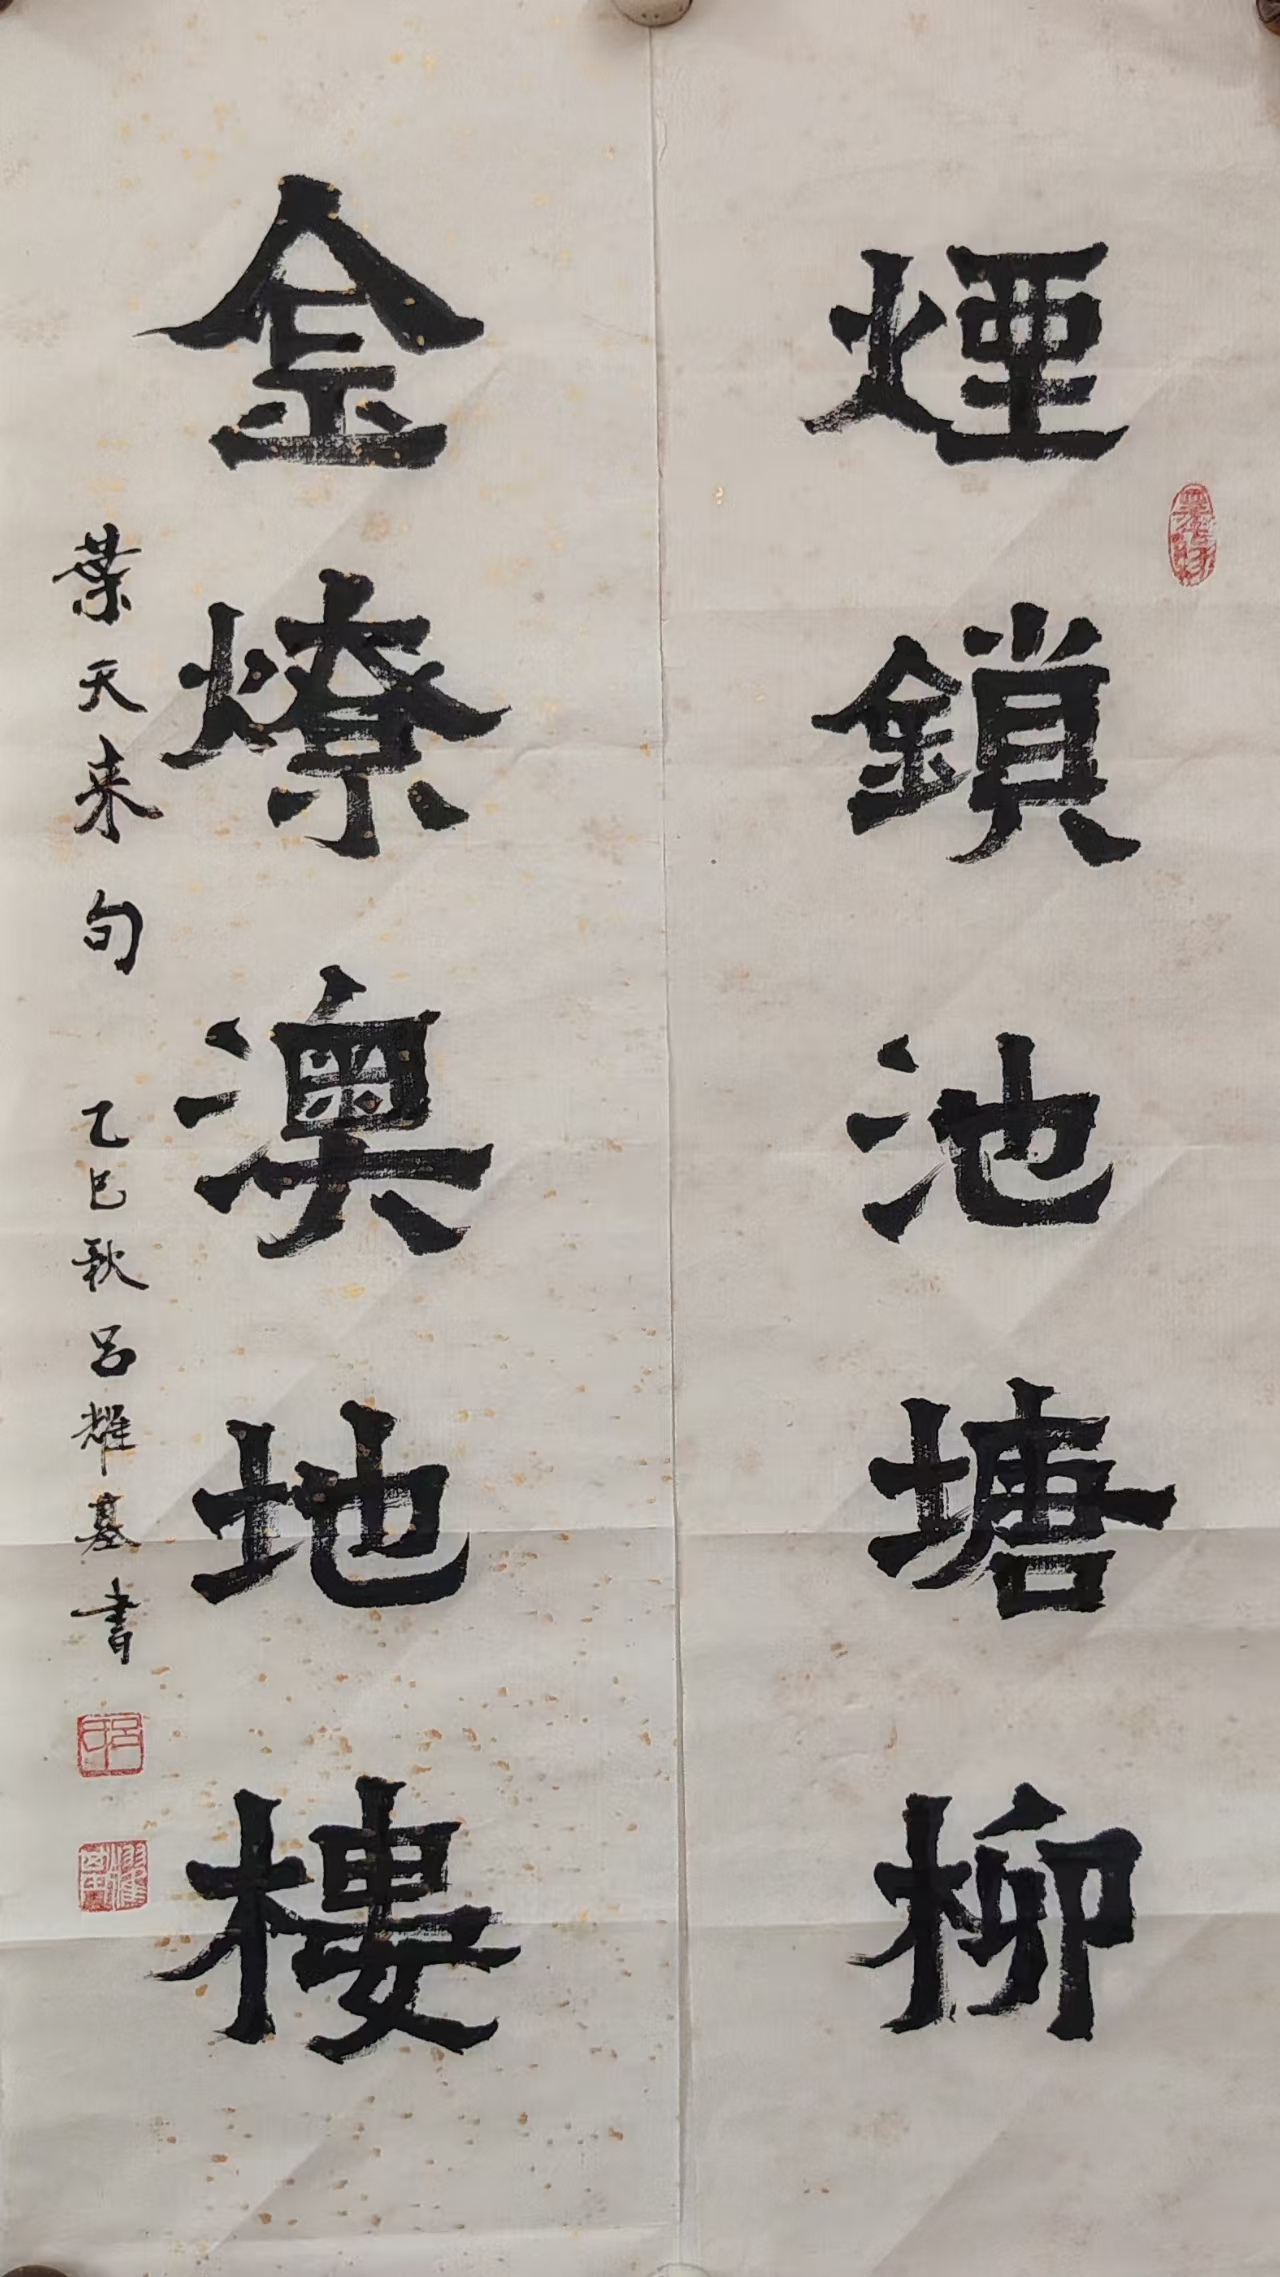 煙鎖池塘柳
金燎澳地樓
葉天来句 乙巳秋 呂耀基書